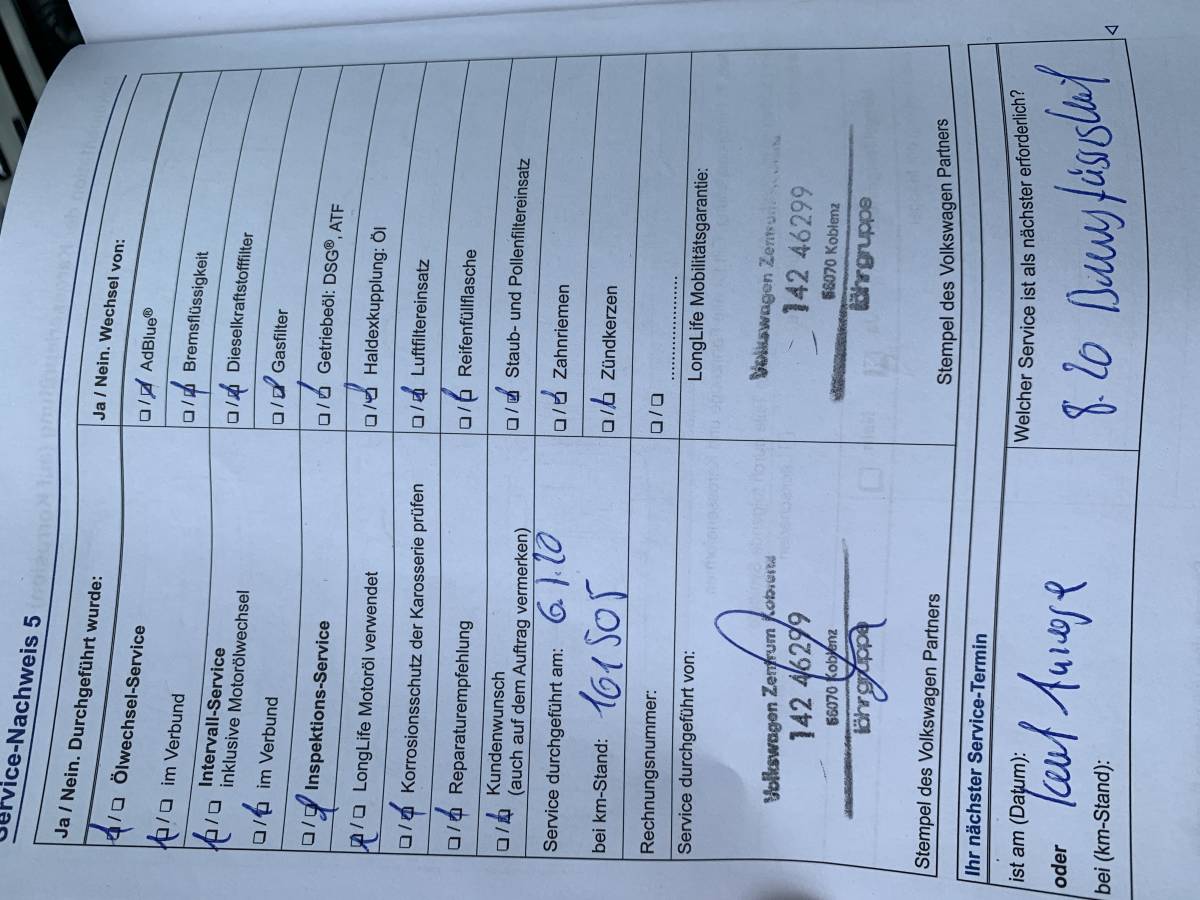 Service-Nachweis 5
Ja / Nein. Durchgeführt wurde:
☑ / ☐ Ölwechsel-Service
☑ / ☐ im Verbund
☑ / ☐ Intervall-Service
inklusive Motorölwechsel
☐ / ☑ im Verbund
☐ / ☑ Inspektions-Service
☑ / ☐ LongLife Motoröl verwendet
☐ / ☑ Korrosionsschutz der Karosserie prüfen
☐ / ☑ Reparaturempfehlung
☐ / ☑ Kundenwunsch
(auch auf dem Auftrag vermerken)
Service durchgeführt am: 6.1.20
bei km-Stand: 161 505
Rechnungsnummer:
Service durchgeführt von:
Volkswagen Zentrum Koblenz
142 46299
56070 Koblenz
löhrgruppe
Stempel des Volkswagen Partners
Ja / Nein. Wechsel von:
☐ / ☑ AdBlue®
☐ / ☑ Bremsflüssigkeit
☐ / ☑ Dieselkraftstofffilter
☐ / ☑ Gasfilter
☐ / ☑ Getriebeöl: DSG®, ATF
☐ / ☑ Haldexkupplung: Öl
☐ / ☑ Luftfiltereinsatz
☐ / ☑ Reifenfüllflasche
☐ / ☑ Staub- und Pollenfiltereinsatz
☐ / ☑ Zahnriemen
☐ / ☑ Zündkerzen
☐ / ☐ ......................
LongLife Mobilitätsgarantie:
Volkswagen Zentrum
142 46299
56070 Koblenz
löhrgruppe
Stempel des Volkswagen Partners
Ihr nächster Service-Termin
ist am (Datum):
oder laut Anzeige
bei (km-Stand):
Welcher Service ist als nächster erforderlich?
8.20